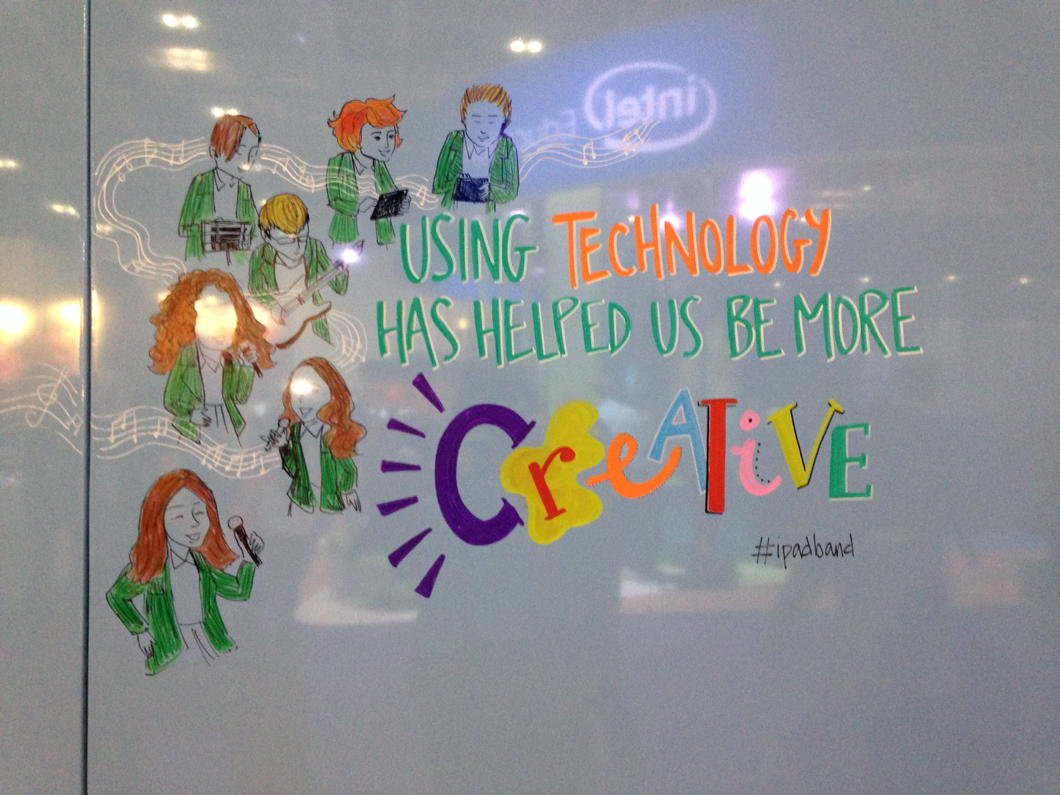 intel
Edu
USING TECHNOLOGY
HAS HELPED US BE MORE
CreATiVE
#ipadband